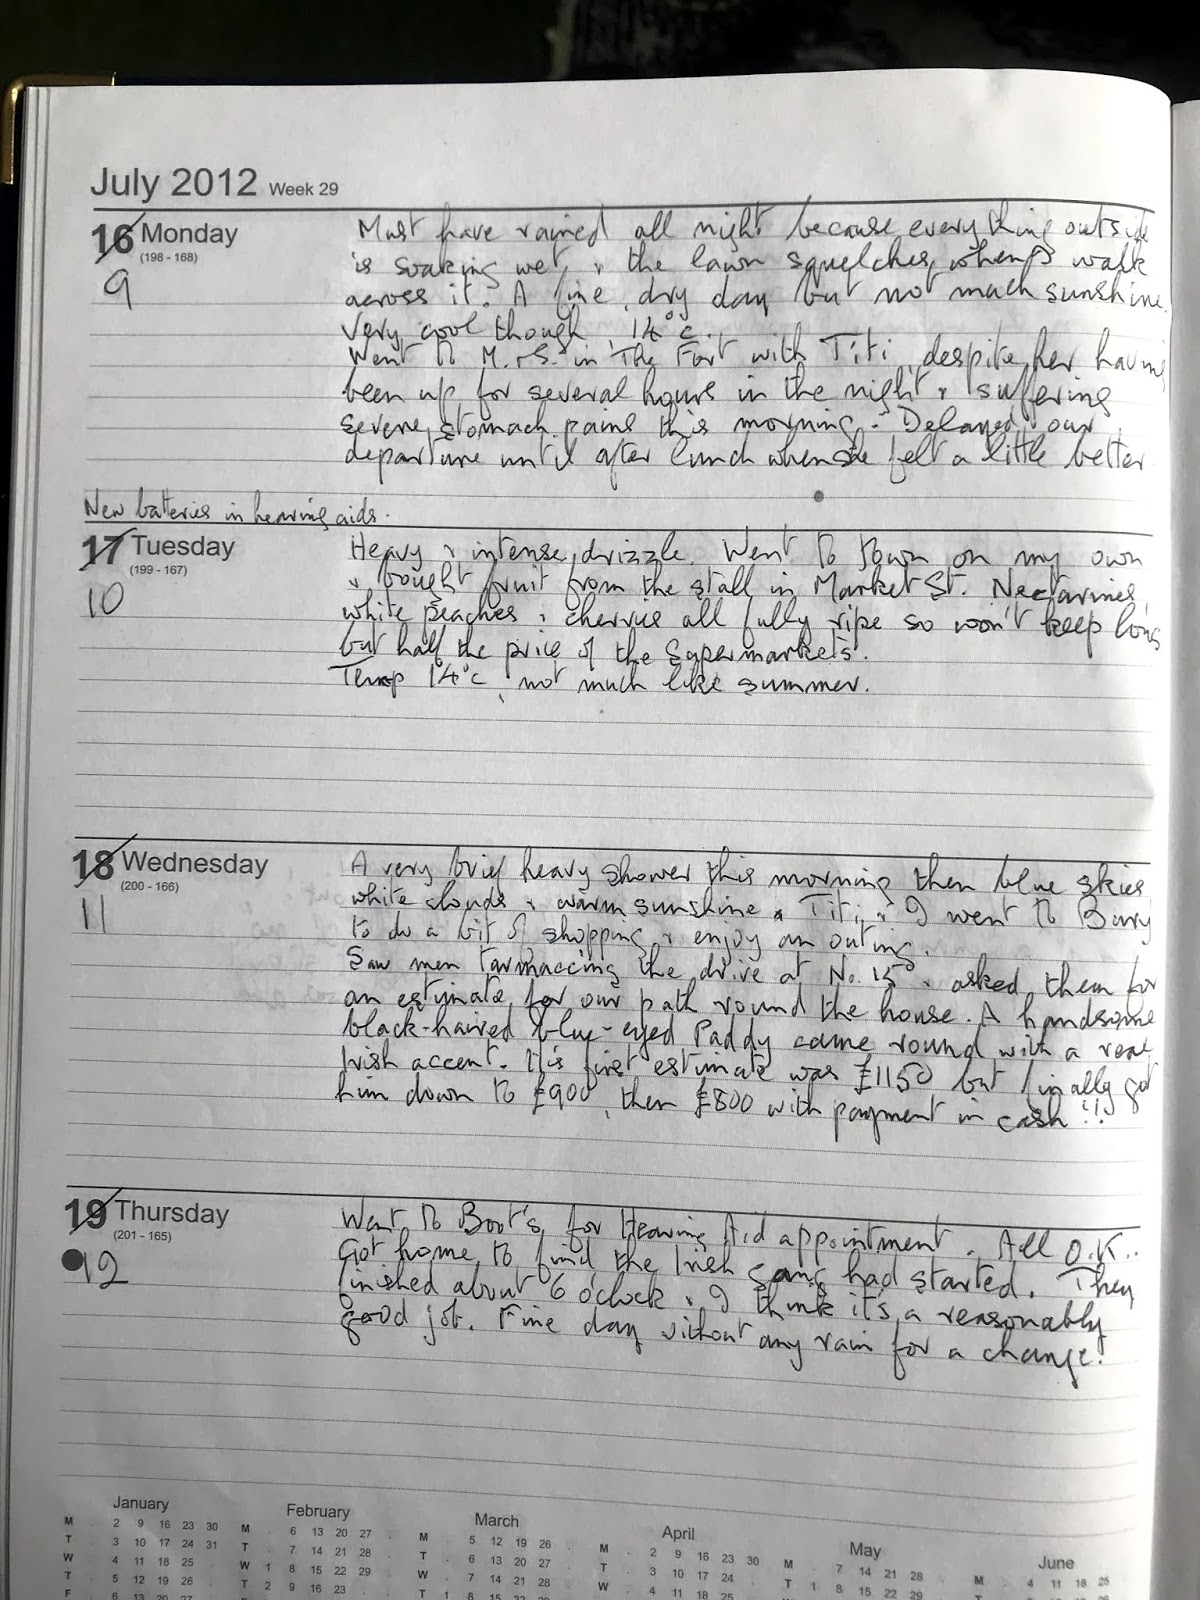 July 2012 Week 29
16 Monday
(198 - 168)
9
Must have rained all night because everything outside
is soaking wet, & the lawn squelches when I walk
across it. A fine, dry day but not much sunshine.
Very cool though, 14°c.
Went to M.&S. in The Fort with Titi, despite her having
been up for several hours in the night & suffering
severe stomach pains this morning. Delayed our
departure until after lunch when she felt a little better
New batteries in hearing aids.
17 Tuesday
(199 - 167)
10
Heavy & intense drizzle. Went to town on my own
& bought fruit from the stall in Market St. Nectarines,
white peaches & cherries all fully ripe so won't keep long
but half the price of the supermarkets.
Temp 14°c, not much like summer.
18 Wednesday
(200 - 166)
11
A very brief heavy shower this morning then blue skies
white clouds & warm sunshine & Titi & I went to Bury
to do a bit of shopping & enjoy an outing.
Saw men tarmaccing the drive at No. 15 & asked them for
an estimate for our path round the house. A handsome
black-haired blue-eyed Paddy came round with a real
Irish accent. His first estimate was £1150 but finally got
him down to £900, then £800 with payment in cash!!
19 Thursday
(201 - 165)
12
Went to Boot's for Hearing Aid appointment. All O.K..
Got home to find the Irish gang had started. They
finished about 6 o'clock & I think it's a reasonably
good job. Fine day without any rain for a change!
January
M 2 9 16 23 30
T 3 10 17 24 31
W 4 11 18 25
T 5 12 19 26
F 6 13 20 27
February
M 6 13 20 27
T 7 14 21 28
W 1 8 15 22 29
T 2 9 16 23
March
M 5 12 19 26
T 6 13 20 27
W 7 14 21 28
T 1 8 15 22 29
April
M 2 9 16 23 30
T 3 10 17 24
W 4 11 18 25
May
M 7 14 21 28
T 1 8 15 22 29
June
M 4 11 18 25